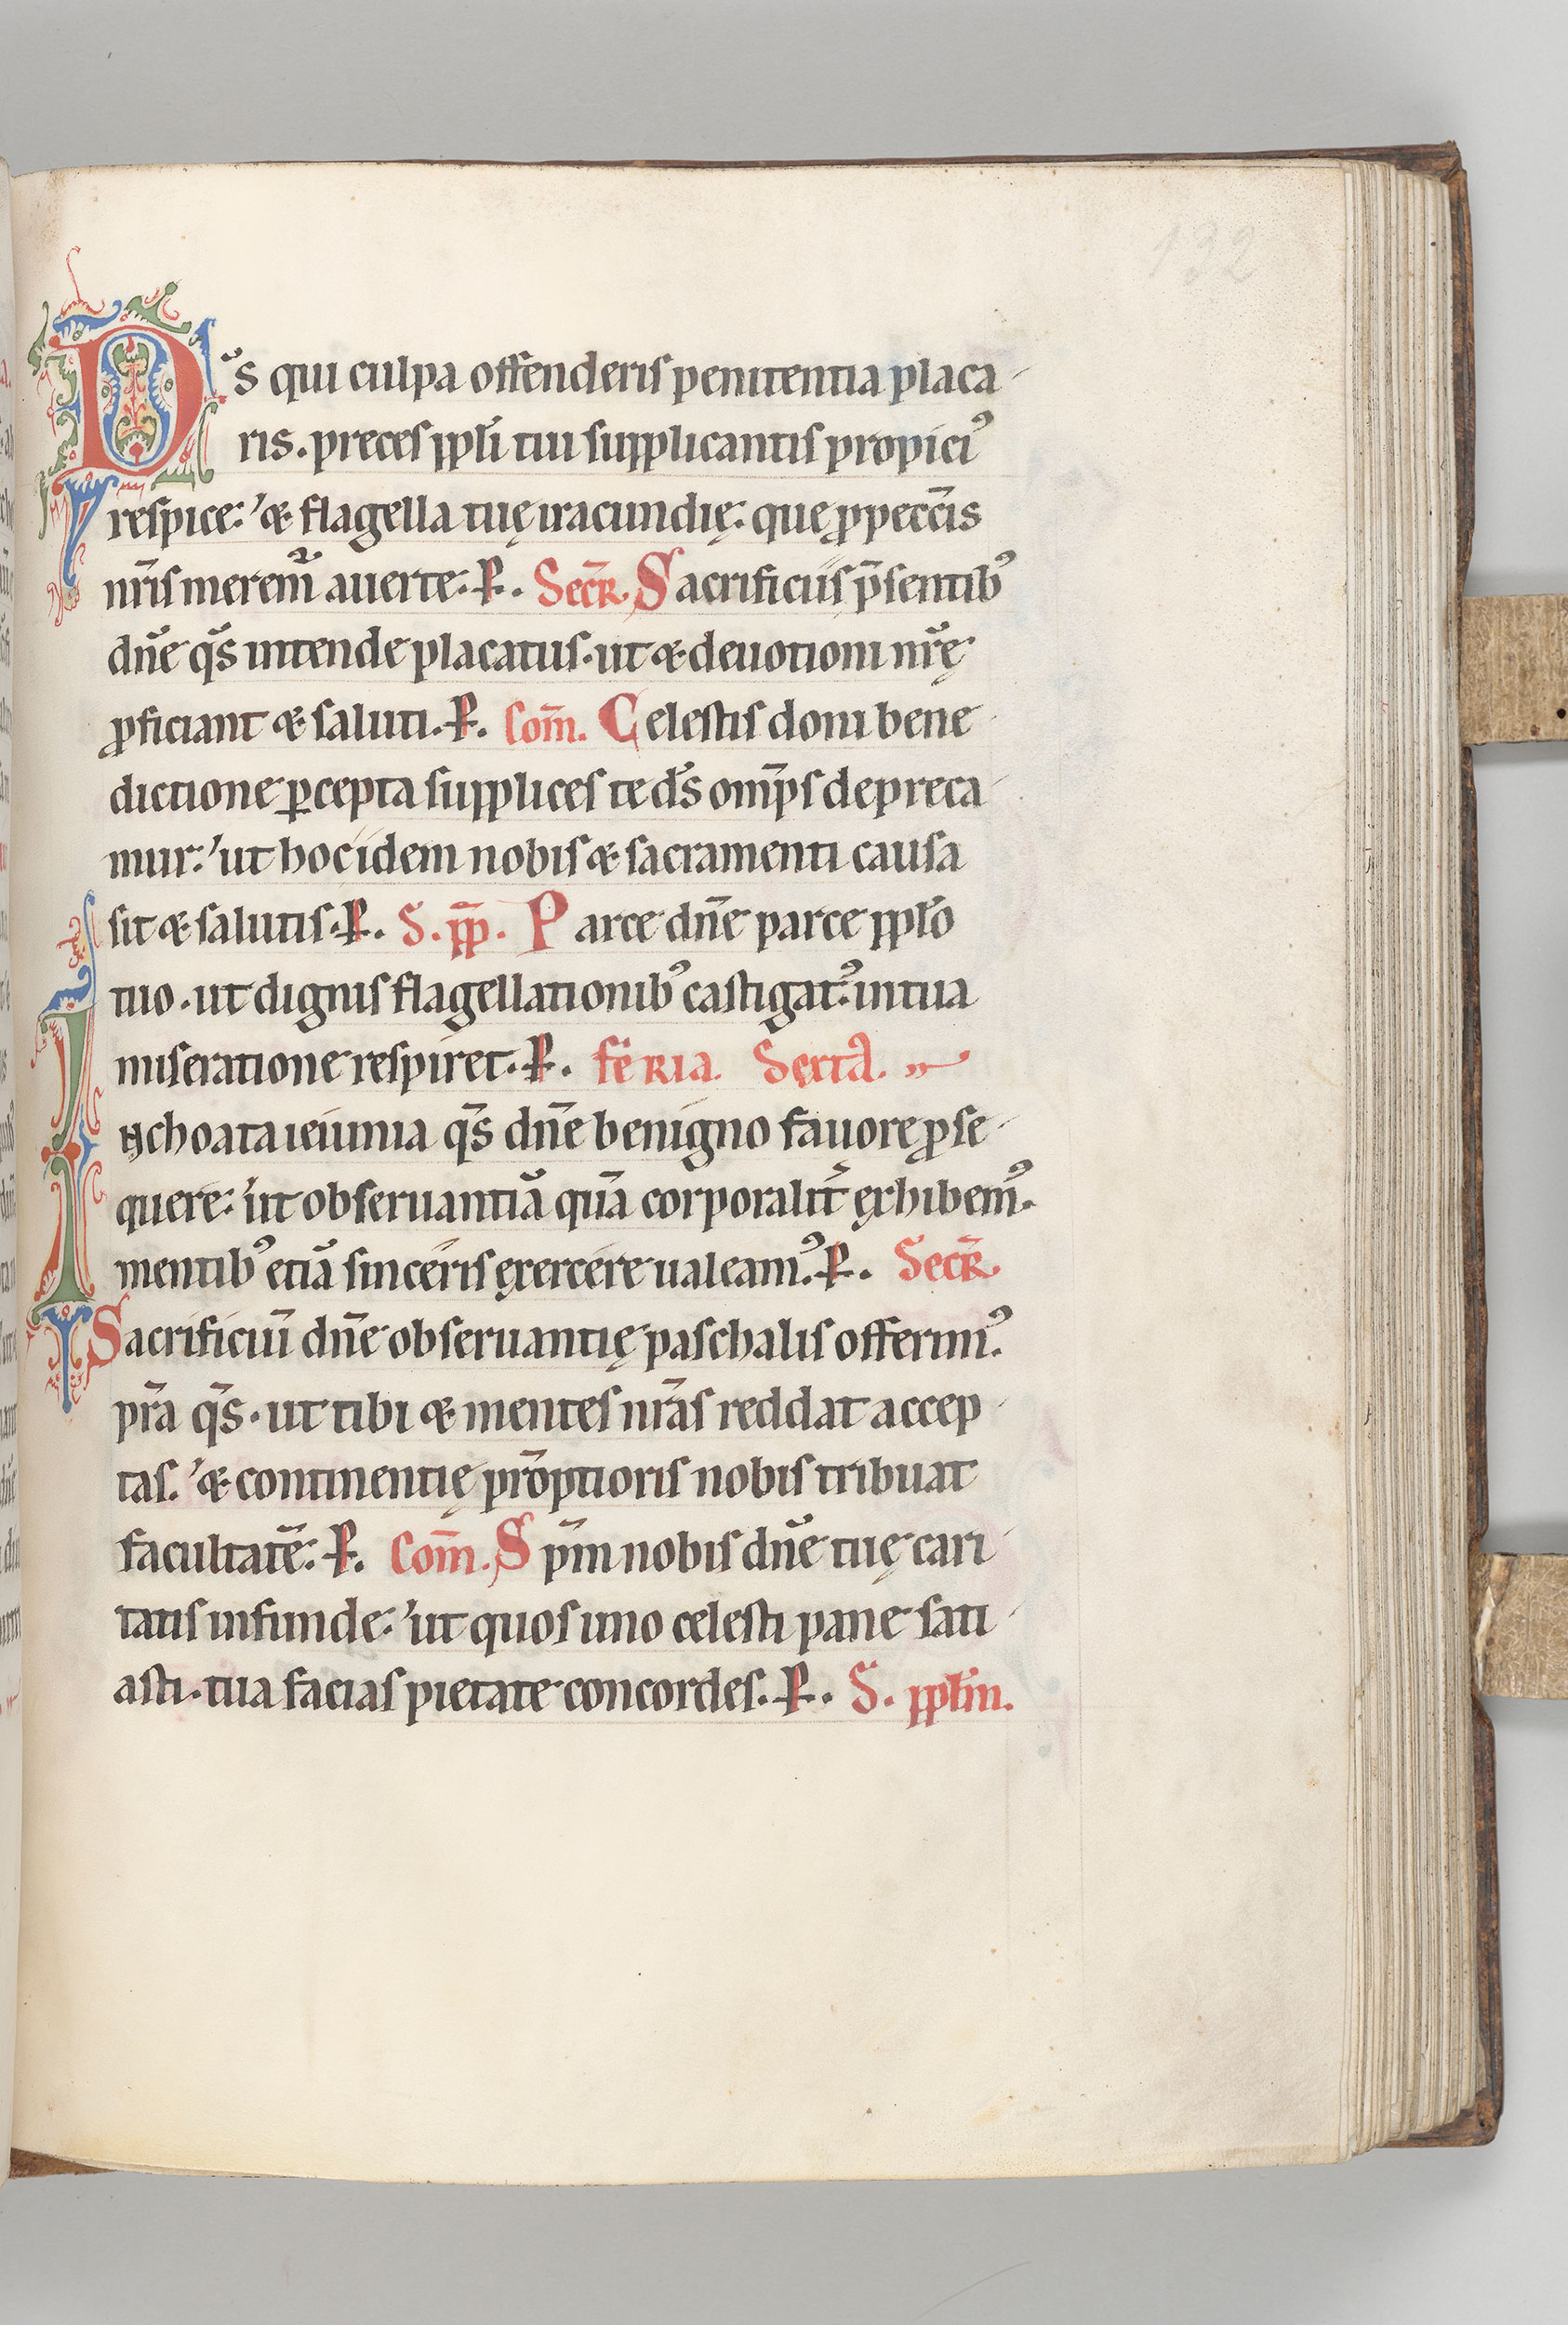 132
DS̆ qui culpa offenderis penitentia placa
ris. preces ppłi tui supplicantis propiciꝰ
respice: & flagella tuę iracundię: que ꝓ peccīs
nr̄is meremᷣ auerte. P. Secr̄. Sacrificiis p̄sentibꝰ
dn̄e qs̄ intende placatus. ut & deuotioni nr̄ę
ꝓficiant & saluti. P. Com̄. Celestis doni bene
dictione ꝑcepta supplices te ds̄ omp̄s depreca
mur: ut hoc idem nobis & sacramenti causa
sit & salutis. P. S. pp̄. Parce dn̄e parce ppło
tuo. ut dignis flagellationibꝰ castigatꝰ: in tua
miseratione respiret. P. feria. Sexta.
INchoata ieiunia qs̄ dn̄e benigno fauore ꝓse
quere: ut obseruantiā quā corporalit̄ exhibemꝰ.
mentibꝰ etiā sinceris exercere ualeamꝰ. P. Secr̄
Sacrificiū dn̄e obseruantię paschalis offerimꝰ.
pr̄a qs̄. ut tibi & mentes nr̄as reddat accep
tas. & continentię prōptioris nobis tribuat
facultatē: P. Com̄. Spm̄ nobis dn̄e tuę cari
tatis infunde: ut quos uno celesti pane sati
asti. tua facias pietate concordes. P. S. ppłm.